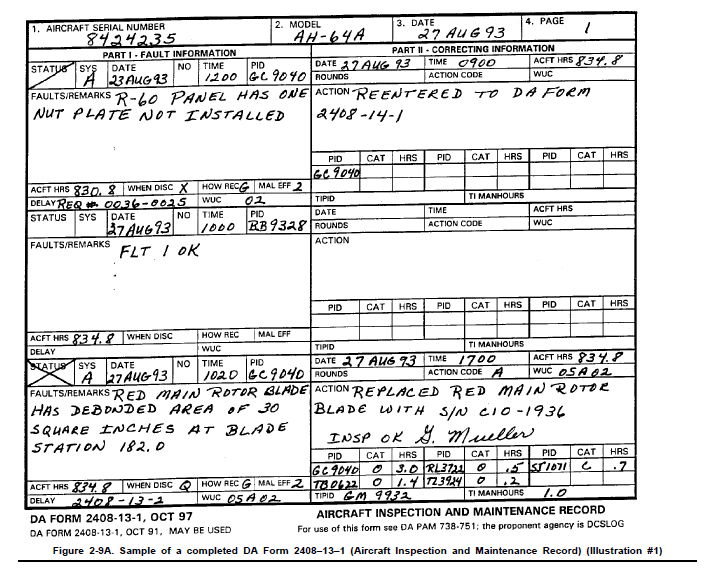 1. AIRCRAFT SERIAL NUMBER
8424235
2. MODEL
AH-64A
3. DATE
27 AUG 93
4. PAGE
1
PART I - FAULT INFORMATION
PART II - CORRECTING INFORMATION
STATUS SYS A DATE 23AUG93 NO TIME 1200 PID GC9040
DATE 27AUG 93 TIME 0900 ACFT HRS 834.8
ROUNDS ACTION CODE WUC
FAULTS/REMARKS R-60 PANEL HAS ONE
NUT PLATE NOT INSTALLED
ACTION REENTERED TO DA FORM
2408-14-1
PID CAT HRS PID CAT HRS PID CAT HRS
GC9040
ACFT HRS 830.8 WHEN DISC X HOW REC G MAL EFF 2
DELAY REQ # 0036-0025 WUC 02
TIPID TI MANHOURS
STATUS SYS DATE 27AUG93 NO TIME 1000 PID BB9328
DATE TIME ACFT HRS
ROUNDS ACTION CODE WUC
FAULTS/REMARKS FLT 1 OK
ACTION
PID CAT HRS PID CAT HRS PID CAT HRS
ACFT HRS 834.8 WHEN DISC HOW REC MAL EFF
DELAY WUC
TIPID TI MANHOURS
STATUS SYS A DATE 27AUG93 NO TIME 1020 PID GC9040
DATE 27 AUG 93 TIME 1700 ACFT HRS 834.8
ROUNDS ACTION CODE A WUC 05A02
FAULTS/REMARKS RED MAIN ROTOR BLADE
HAS DEBONDED AREA OF 30
SQUARE INCHES AT BLADE
STATION 182.0
ACTION REPLACED RED MAIN ROTOR
BLADE WITH S/N C10-1936
INSP OK G. Mueller
PID CAT HRS PID CAT HRS PID CAT HRS
GC9040 0 3.0 RL3722 0 .5 SJ1071 C .7
TB0622 0 1.4 TZ3924 0 .2
ACFT HRS 834.8 WHEN DISC Q HOW REC G MAL EFF 2
DELAY 2408-13-2 WUC 05A02
TIPID GM 9932 TI MANHOURS 1.0
DA FORM 2408-13-1, OCT 97
AIRCRAFT INSPECTION AND MAINTENANCE RECORD
DA FORM 2408-13-1, OCT 91, MAY BE USED
For use of this form see DA PAM 738-751; the proponent agency is DCSLOG
Figure 2-9A. Sample of a completed DA Form 2408–13–1 (Aircraft Inspection and Maintenance Record) (Illustration #1)